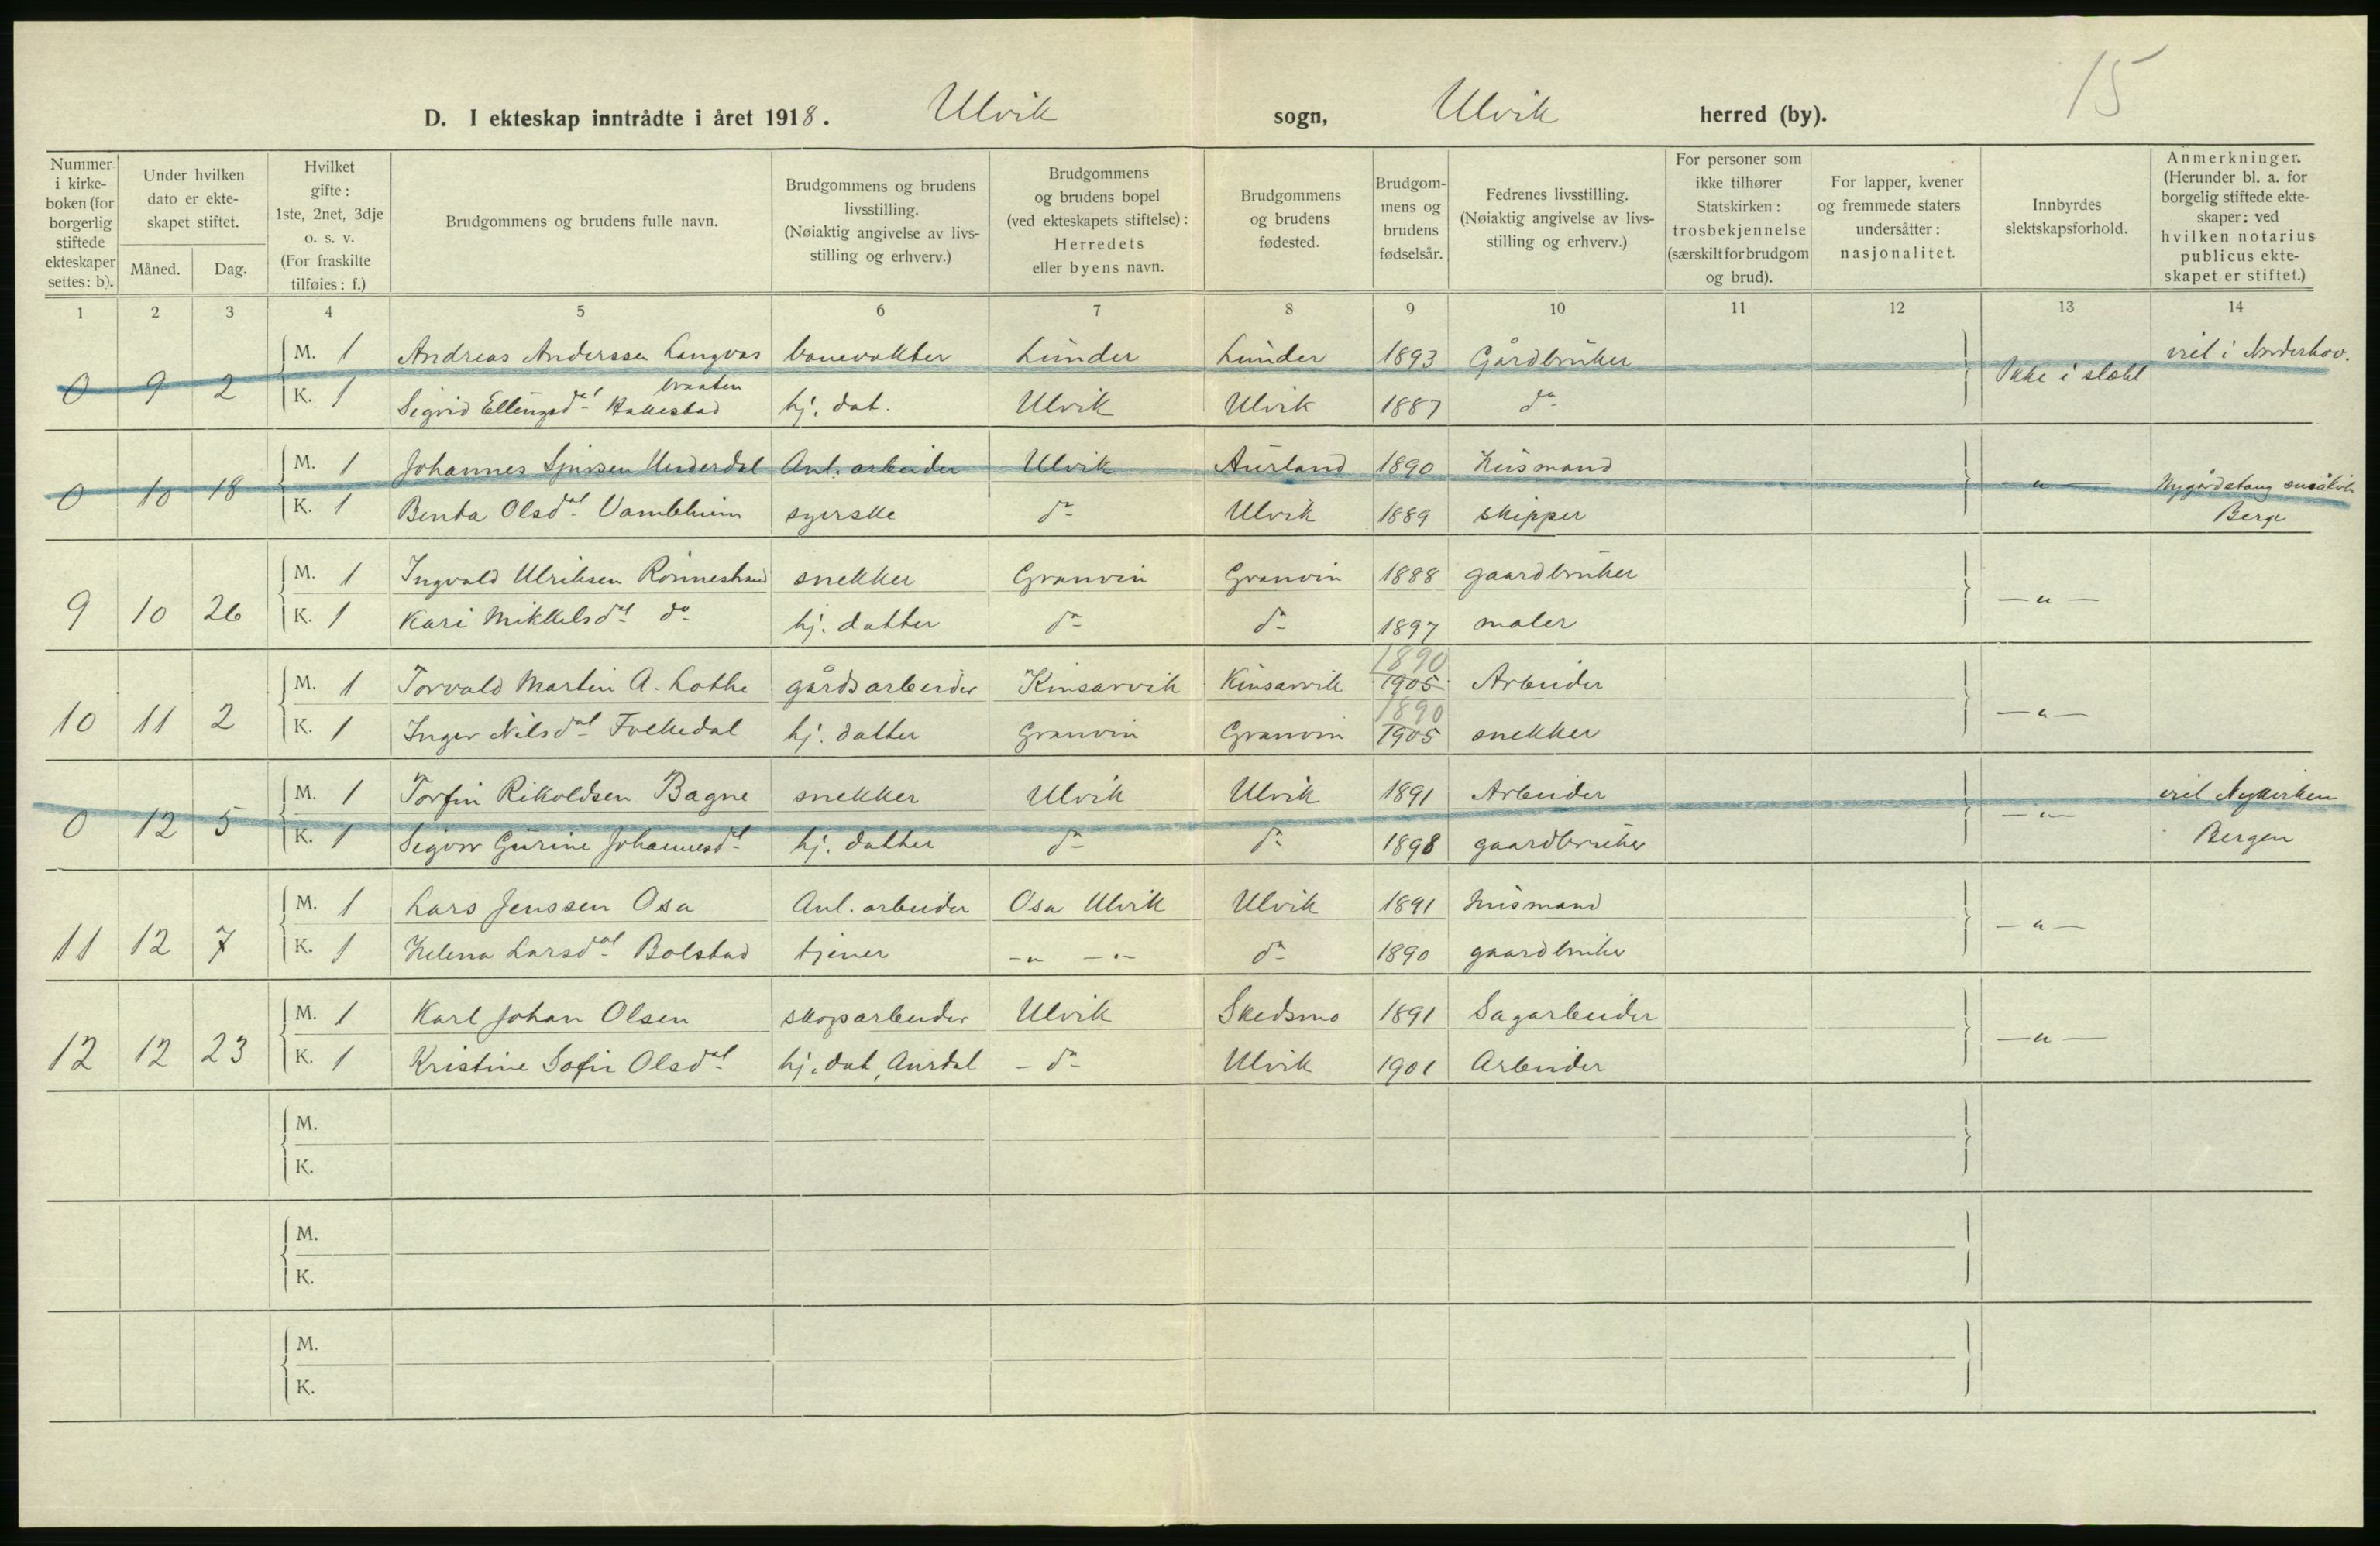 15
D. I ekteskap inntrådte i året 1918. Ulvik sogn, Ulvik herred (by).
Nummer i kirke-boken (for borgerlig stiftede ekteskaper settes: b).
Under hvilken dato er ekte-skapet stiftet.
Måned. Dag.
Hvilket gifte: 1ste, 2net, 3dje o. s. v. (For fraskilte tilføies: f.)
Brudgommens og brudens fulle navn.
Brudgommens og brudens livsstilling. (Nøiaktig angivelse av livs-stilling og erhverv.)
Brudgommens og brudens bopel (ved ekteskapets stiftelse): Herredets eller byens navn.
Brudgommens og brudens fødested.
Brudgom-mens og brudens fødselsår.
Fedrenes livsstilling. (Nøiaktig angivelse av livs-stilling og erhverv.)
For personer som ikke tilhører Statskirken: trosbekjennelse (særskilt for brudgom og brud).
For lapper, kvener og fremmede staters undersåtter: nasjonalitet.
Innbyrdes slektskapsforhold.
Anmerkninger. (Herunder bl. a. for borgelig stiftede ekte-skaper: ved hvilken notarius publicus ekte-skapet er stiftet.)
1 2 3 4 5 6 7 8 9 10 11 12 13 14
M. 1 Andreas Anderssen Langvas banevokter Lunder Lunder 1893 Gårdbruker viel i Norderhov.
0 9 2 Ikke i slekt
braaten
K. 1 Sigrid Ellingsdat Hallestad hj. dat. Ulvik Ulvik 1887 do
M. 1 Johannes Sjursen Underdal Anl. arbeider Ulvik Aurland 1890 Husmand
0 10 18 — " — Nygårdstang
K. 1 Benta Olsdat Vambheim syerske do Ulvik 1889 skipper Berge
M. 1 Ingvald Ulriksen Rønnestrand snekker Granvin Granvin 1888 gaardbruker
9 10 26 — " —
K. 1 Kari Mikkelsdat do hj. datter do do 1897 maler
1890
M. 1 Torvald Martin A. Lothe gårdsarbeider Kinsarvik Kinsarvik 1905 Arbeider
10 11 2 — " —
1890
K. 1 Inger Nilsdat Folkedal hj. datter Granvin Granvin 1905 snekker
M. 1 Torfin Rikoldsen Bagne snekker Ulvik Ulvik 1891 Arbeider viel Nykirken
0 12 5 — " —
K. 1 Sigvor Gurine Johannesdt hj. datter do do 1898 gaardbruker Bergen
M. 1 Lars Jenssen Osa Anl. arbeider Osa Ulvik Ulvik 1891 husmand
11 12 7 — " —
K. 1 Helena Larsdat Bolstad tjener — " — " — do 1890 gaardbruker
M. 1 Karl Johan Olsen skogsarbeider Ulvik Skedsmo 1891 Sagarbeider
12 12 23 — " —
K. 1 Kristine Sofie Olsdat hj. dat, Aurdal — do Ulvik 1901 Arbeider
M.
K.
M.
K.
M.
K.